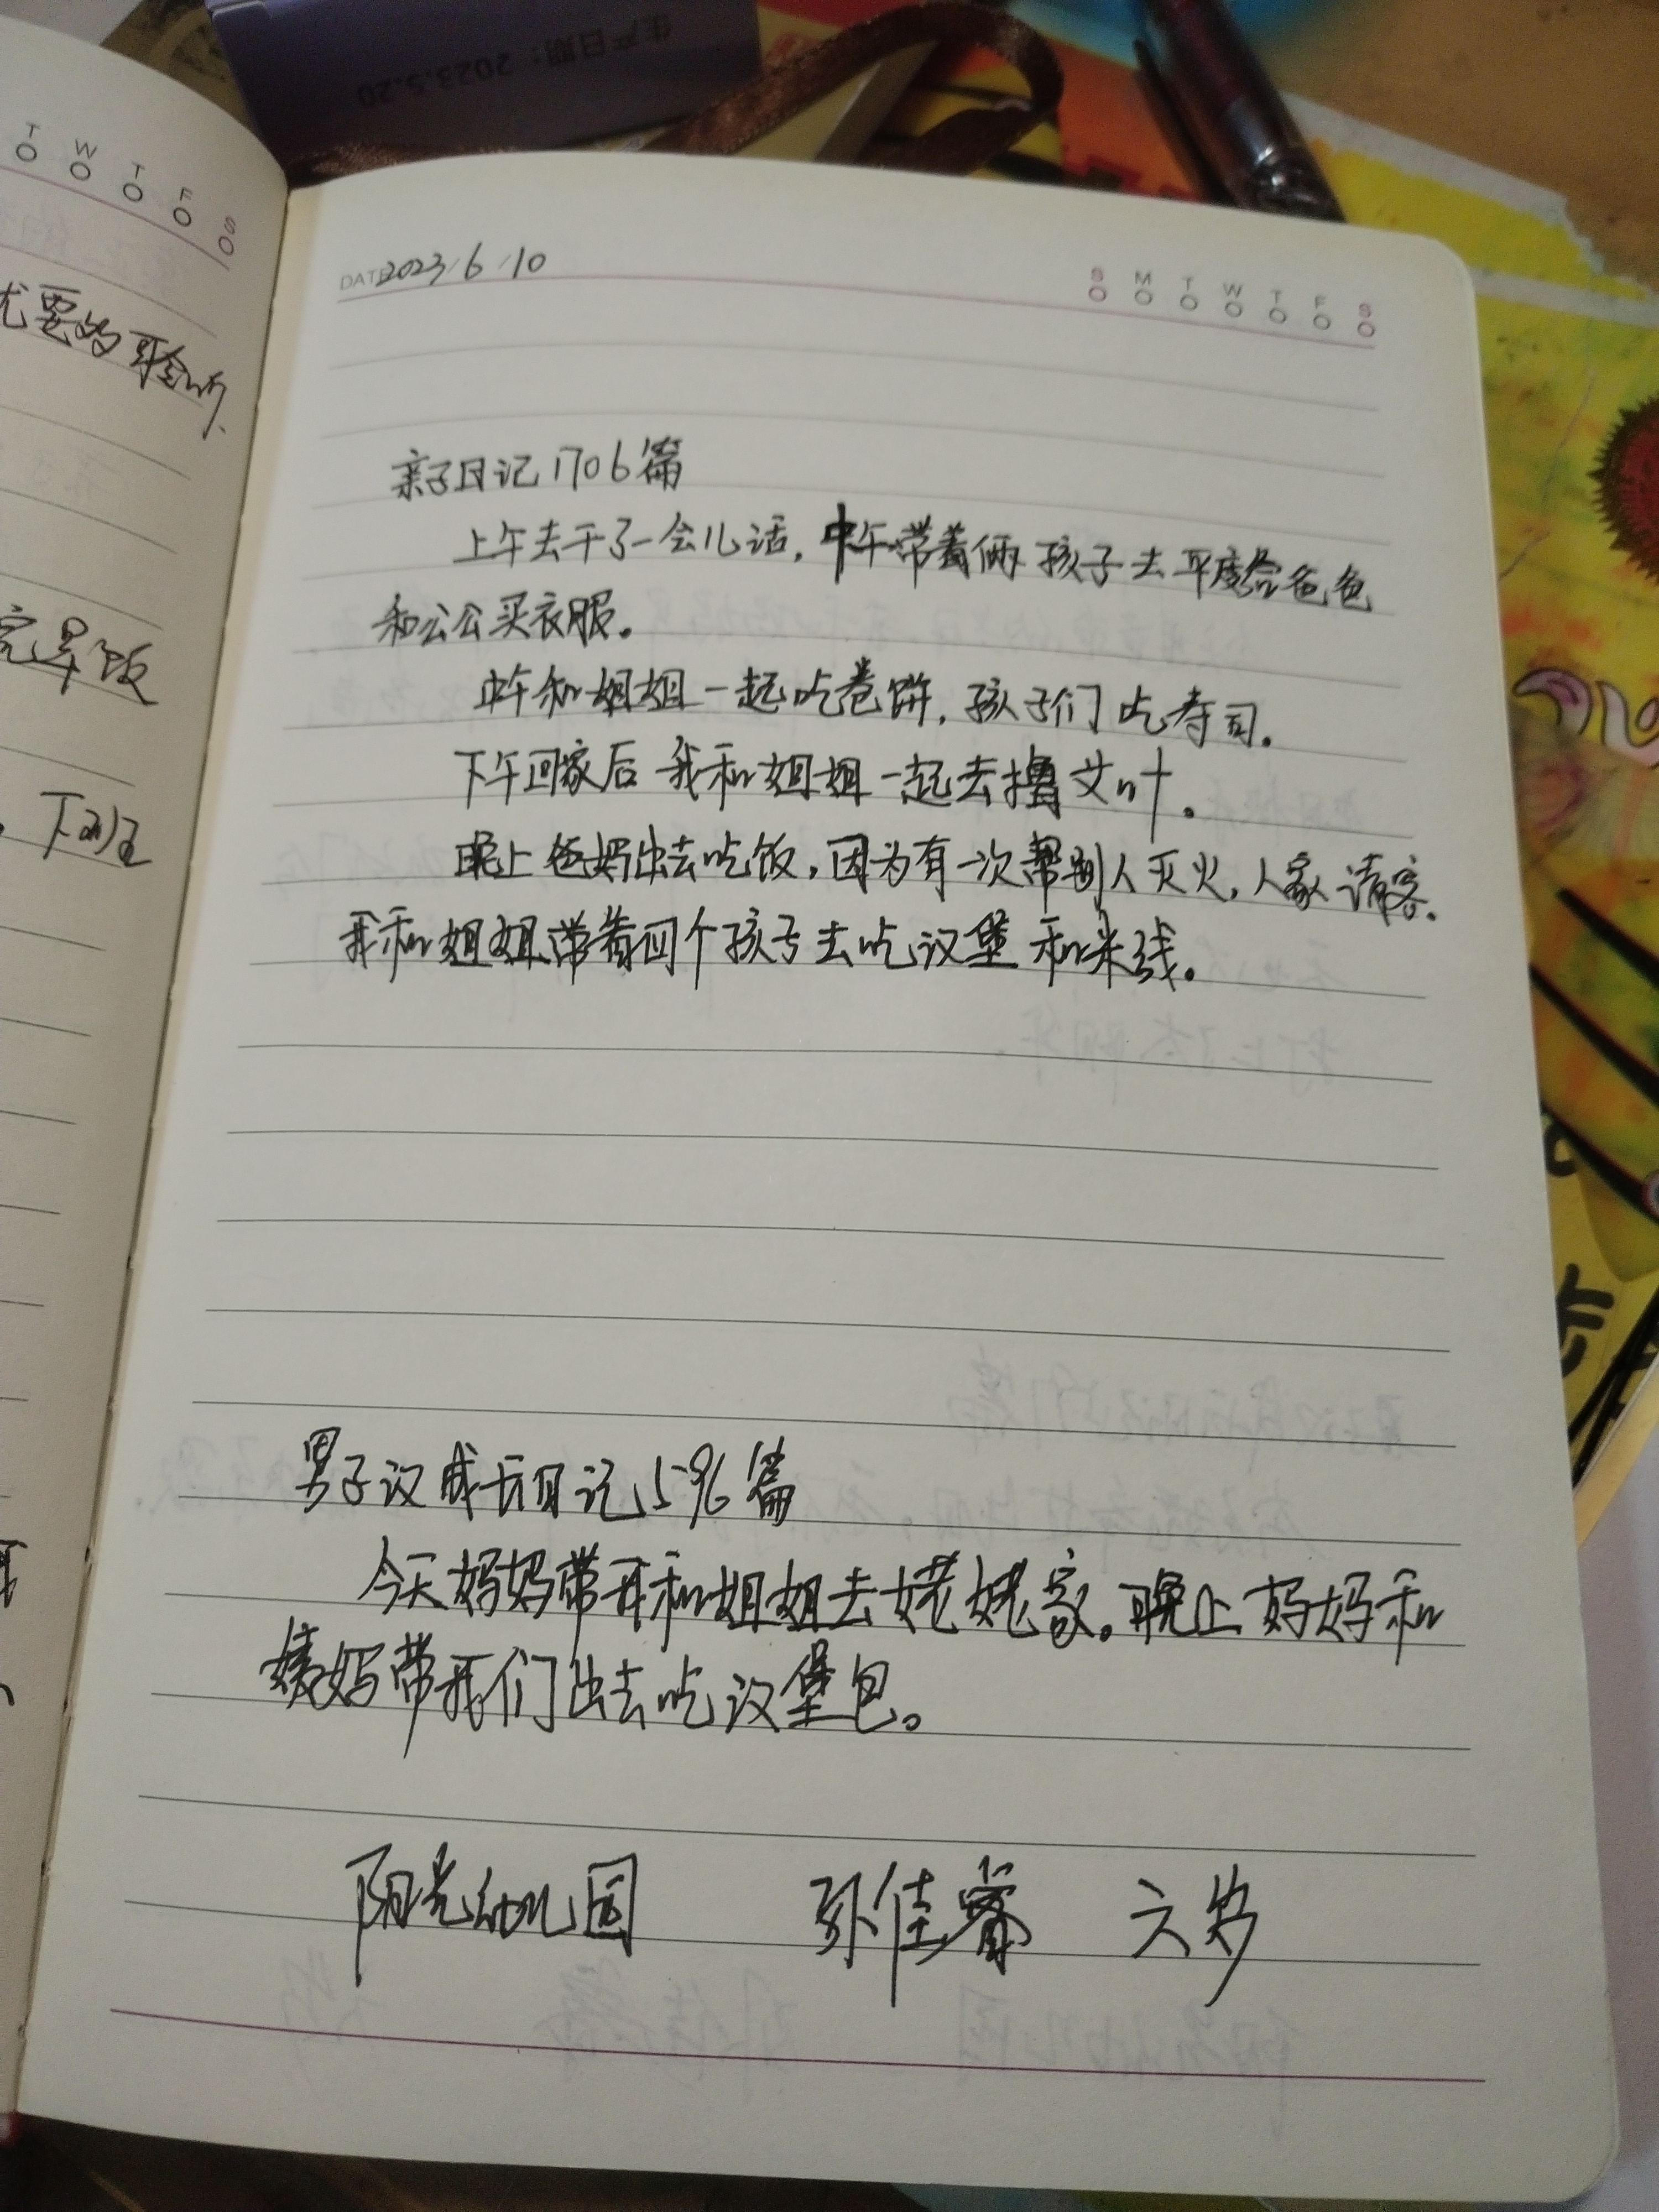 生产日期：2023.5.20
T W T F S
尤要的
完早饭
下班
DATE 2023/6/10
S M T W T F S
亲子日记1706篇
上午去干了一会儿活，中午带着俩孩子去平度给爸爸
和公公买衣服。
中午和姐姐一起吃卷饼，孩子们吃寿司。
下午回家后我和姐姐一起去撸艾叶。
晚上爸妈出去吃饭，因为有一次帮别人灭火，人家请客。
我和姐姐带着四个孩子去吃汉堡和米线。
男子汉成长日记596篇
今天妈妈带我和姐姐去姥姥家。晚上妈妈和
姨妈带我们出去吃汉堡包。
阳光幼儿园 孙佳睿 六岁